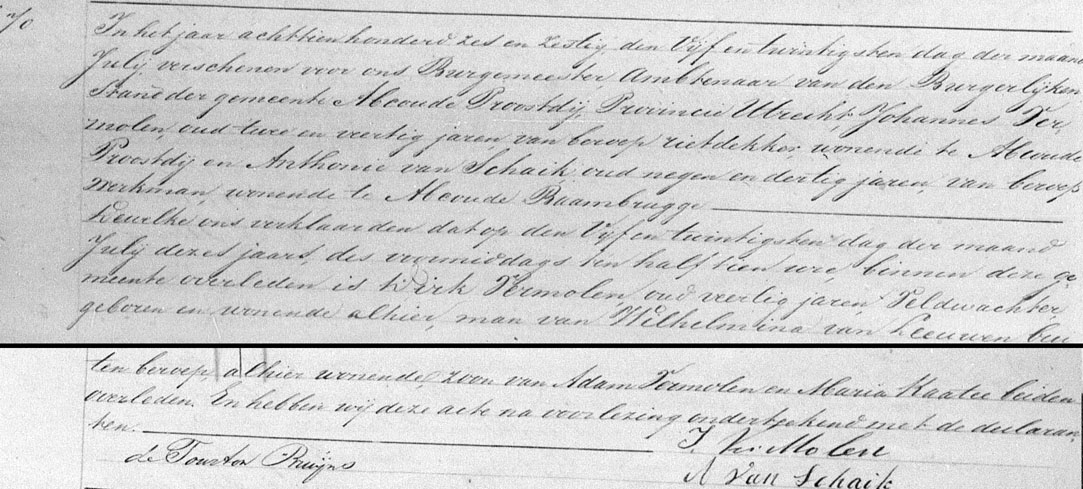 70
In het jaar achttienhonderd zes en zestig den Vyf en twintigsten dag der maand
July verschenen voor ons Burgemeester, Ambtenaar van den Burgerlyken
Stand der gemeente Abcoude Proostdy, Provincie Utrecht, Johannes Ter,
molen, oud twee en veertig jaren van beroep rietdekker, wonende te Abcoude
Proostdij en Anthonie van Schaik, oud negen en dertig jaren van beroep
werkman, wonende te Abcoude Baambrugge
Dewelke ons verklaarden dat op den Vyf en twintigsten dag der maand
July dezes jaars, des voormiddags ten half tien ure, binnen deze ge
meente overleden is Dirk Termolen, oud veertig jaren, Veldwachter
geboren en wonende alhier, man van Wilhelmina van Leeuwen bui
ten beroep, alhier wonende, zoon van Adam Termolen en Maria Kaatee beiden
overleden. En hebben wy deze acte na voorlezing onderteekend met de declaran,
ten.
J. Ter Molen
de Tourton Bruyns
A Van Schaik